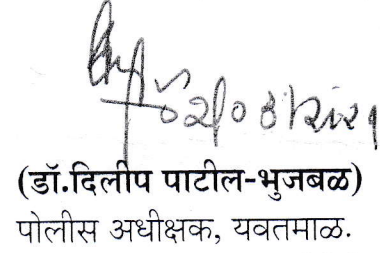 (डॉ.दिलीप पाटील-भुजबळ)
पोलीस अधीक्षक, यवतमाळ.